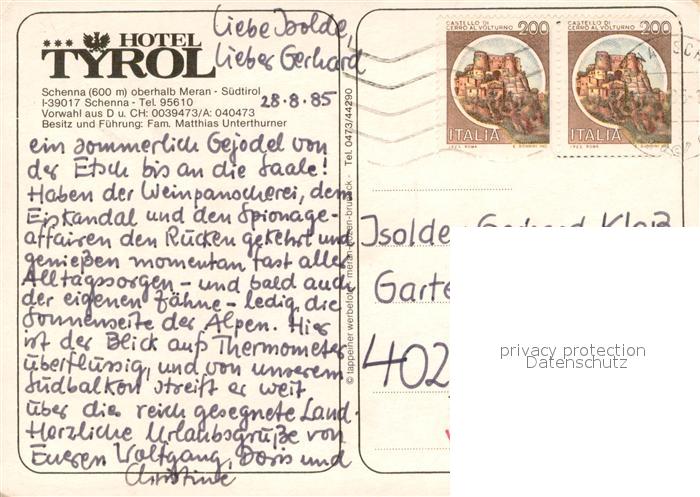 Liebe Isolde,
lieber Gerhard
*** HOTEL
TYROL
Schenna (600 m) oberhalb Meran - Südtirol
I-39017 Schenna - Tel. 95610
Vorwahl aus D u. CH: 0039473/A: 040473
Besitz und Führung: Fam. Matthias Unterthurner
28.8.85
ein sommerlich Gejodel von
der Etsch bis an die Saale!
Haben der Weinpanscherei, dem
Eiskandal und den Spionage-
affairen den Rücken gekehrt und
genießen momentan fast aller
Alltagssorgen - und bald auch
der eigenen Zähne - ledig, die
Sonnenseite der Alpen. Hier
ist der Blick auf's Thermometer
überflüssig, und von unserem
Südbalkon streift er weit
über die reich gesegnete Land.
Herzliche Urlaubsgrüße von
Eueren Wolfgang, Doris und
Christine
© tappeiner werbefoto - meran-bozen-bruneck - Tel. 0473/44290
CASTELLO DI
CERRO AL VOLTURNO
200
ITALIA
CASTELLO DI
CERRO AL VOLTURNO
200
ITALIA
Isolde Gerhard
Garte
402
privacy protection
Datenschutz